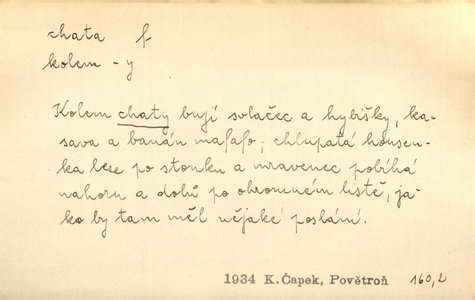 chata f
kolem - y
Kolem chaty bují svlačec a hybišky, ka-
sava a banán mafafo; chlupatá housen-
ka leze po stonku a mravenec pobíhá
nahoru a dolů po ohromném listě, ja-
ko by tam měl nějaké poslání.
1934 K. Čapek, Povětroň 160,2